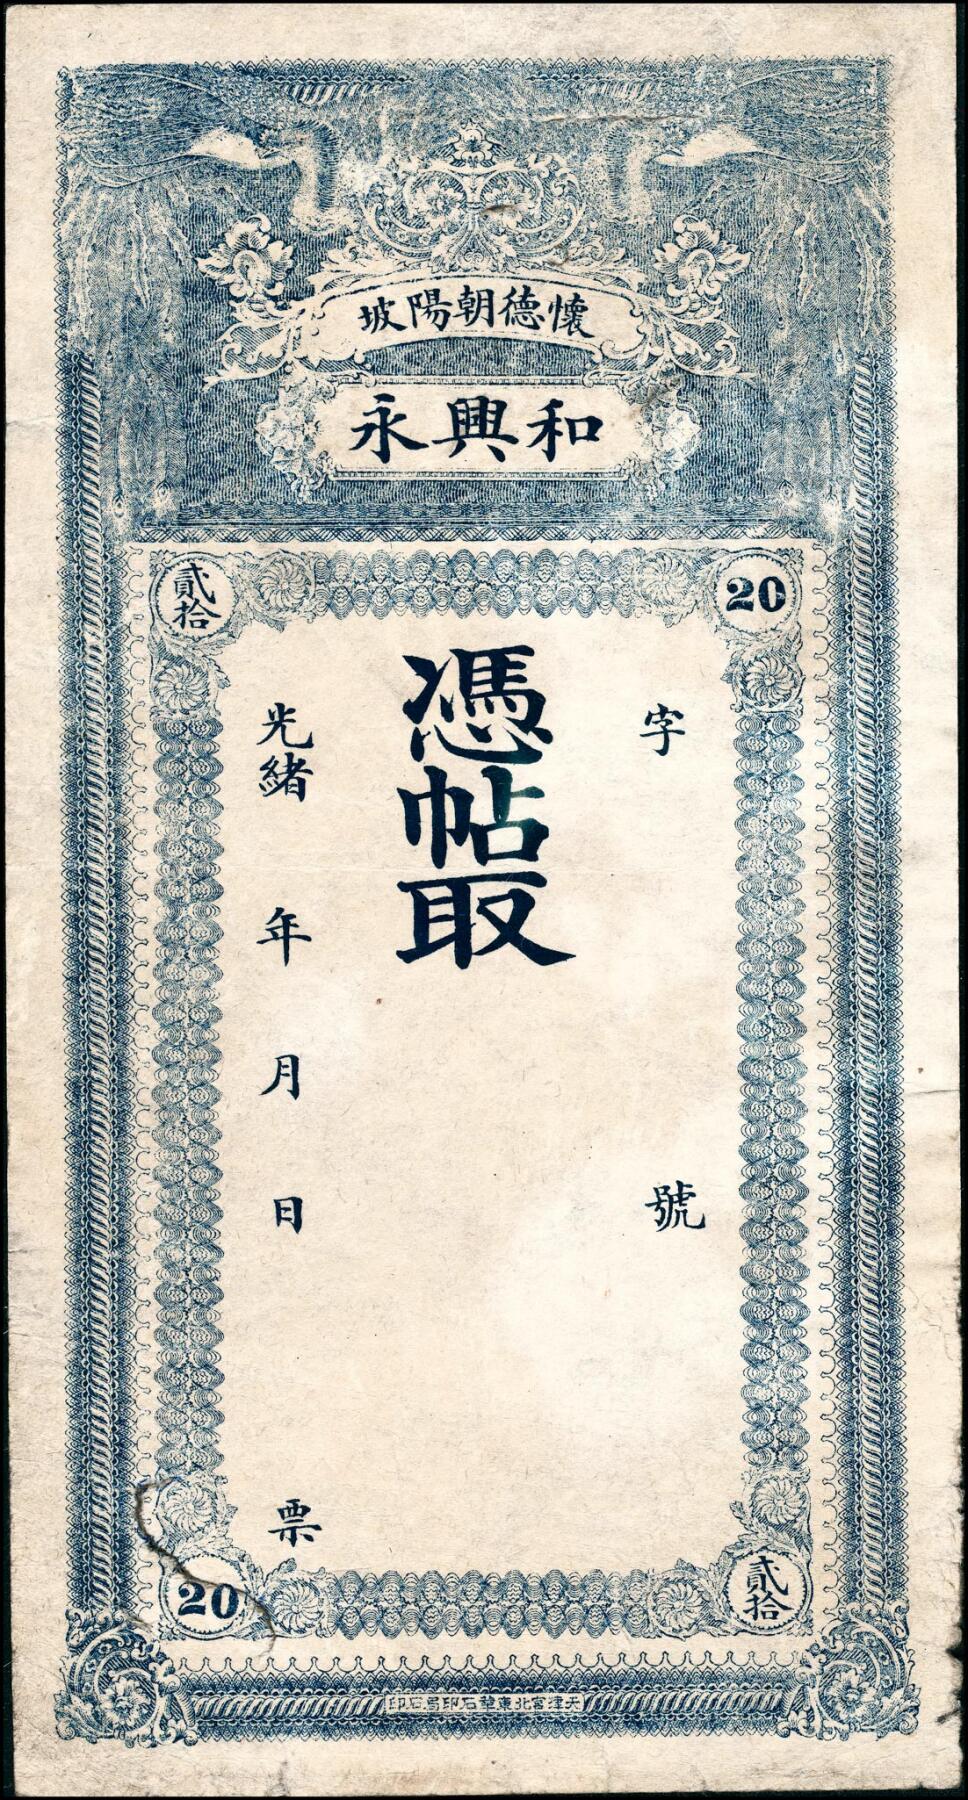 懷德朝陽坡
和興永
20
貳拾
字 號
憑帖取
光緒 年 月 日 票
貳拾
20
天津宮北東華石印局石印